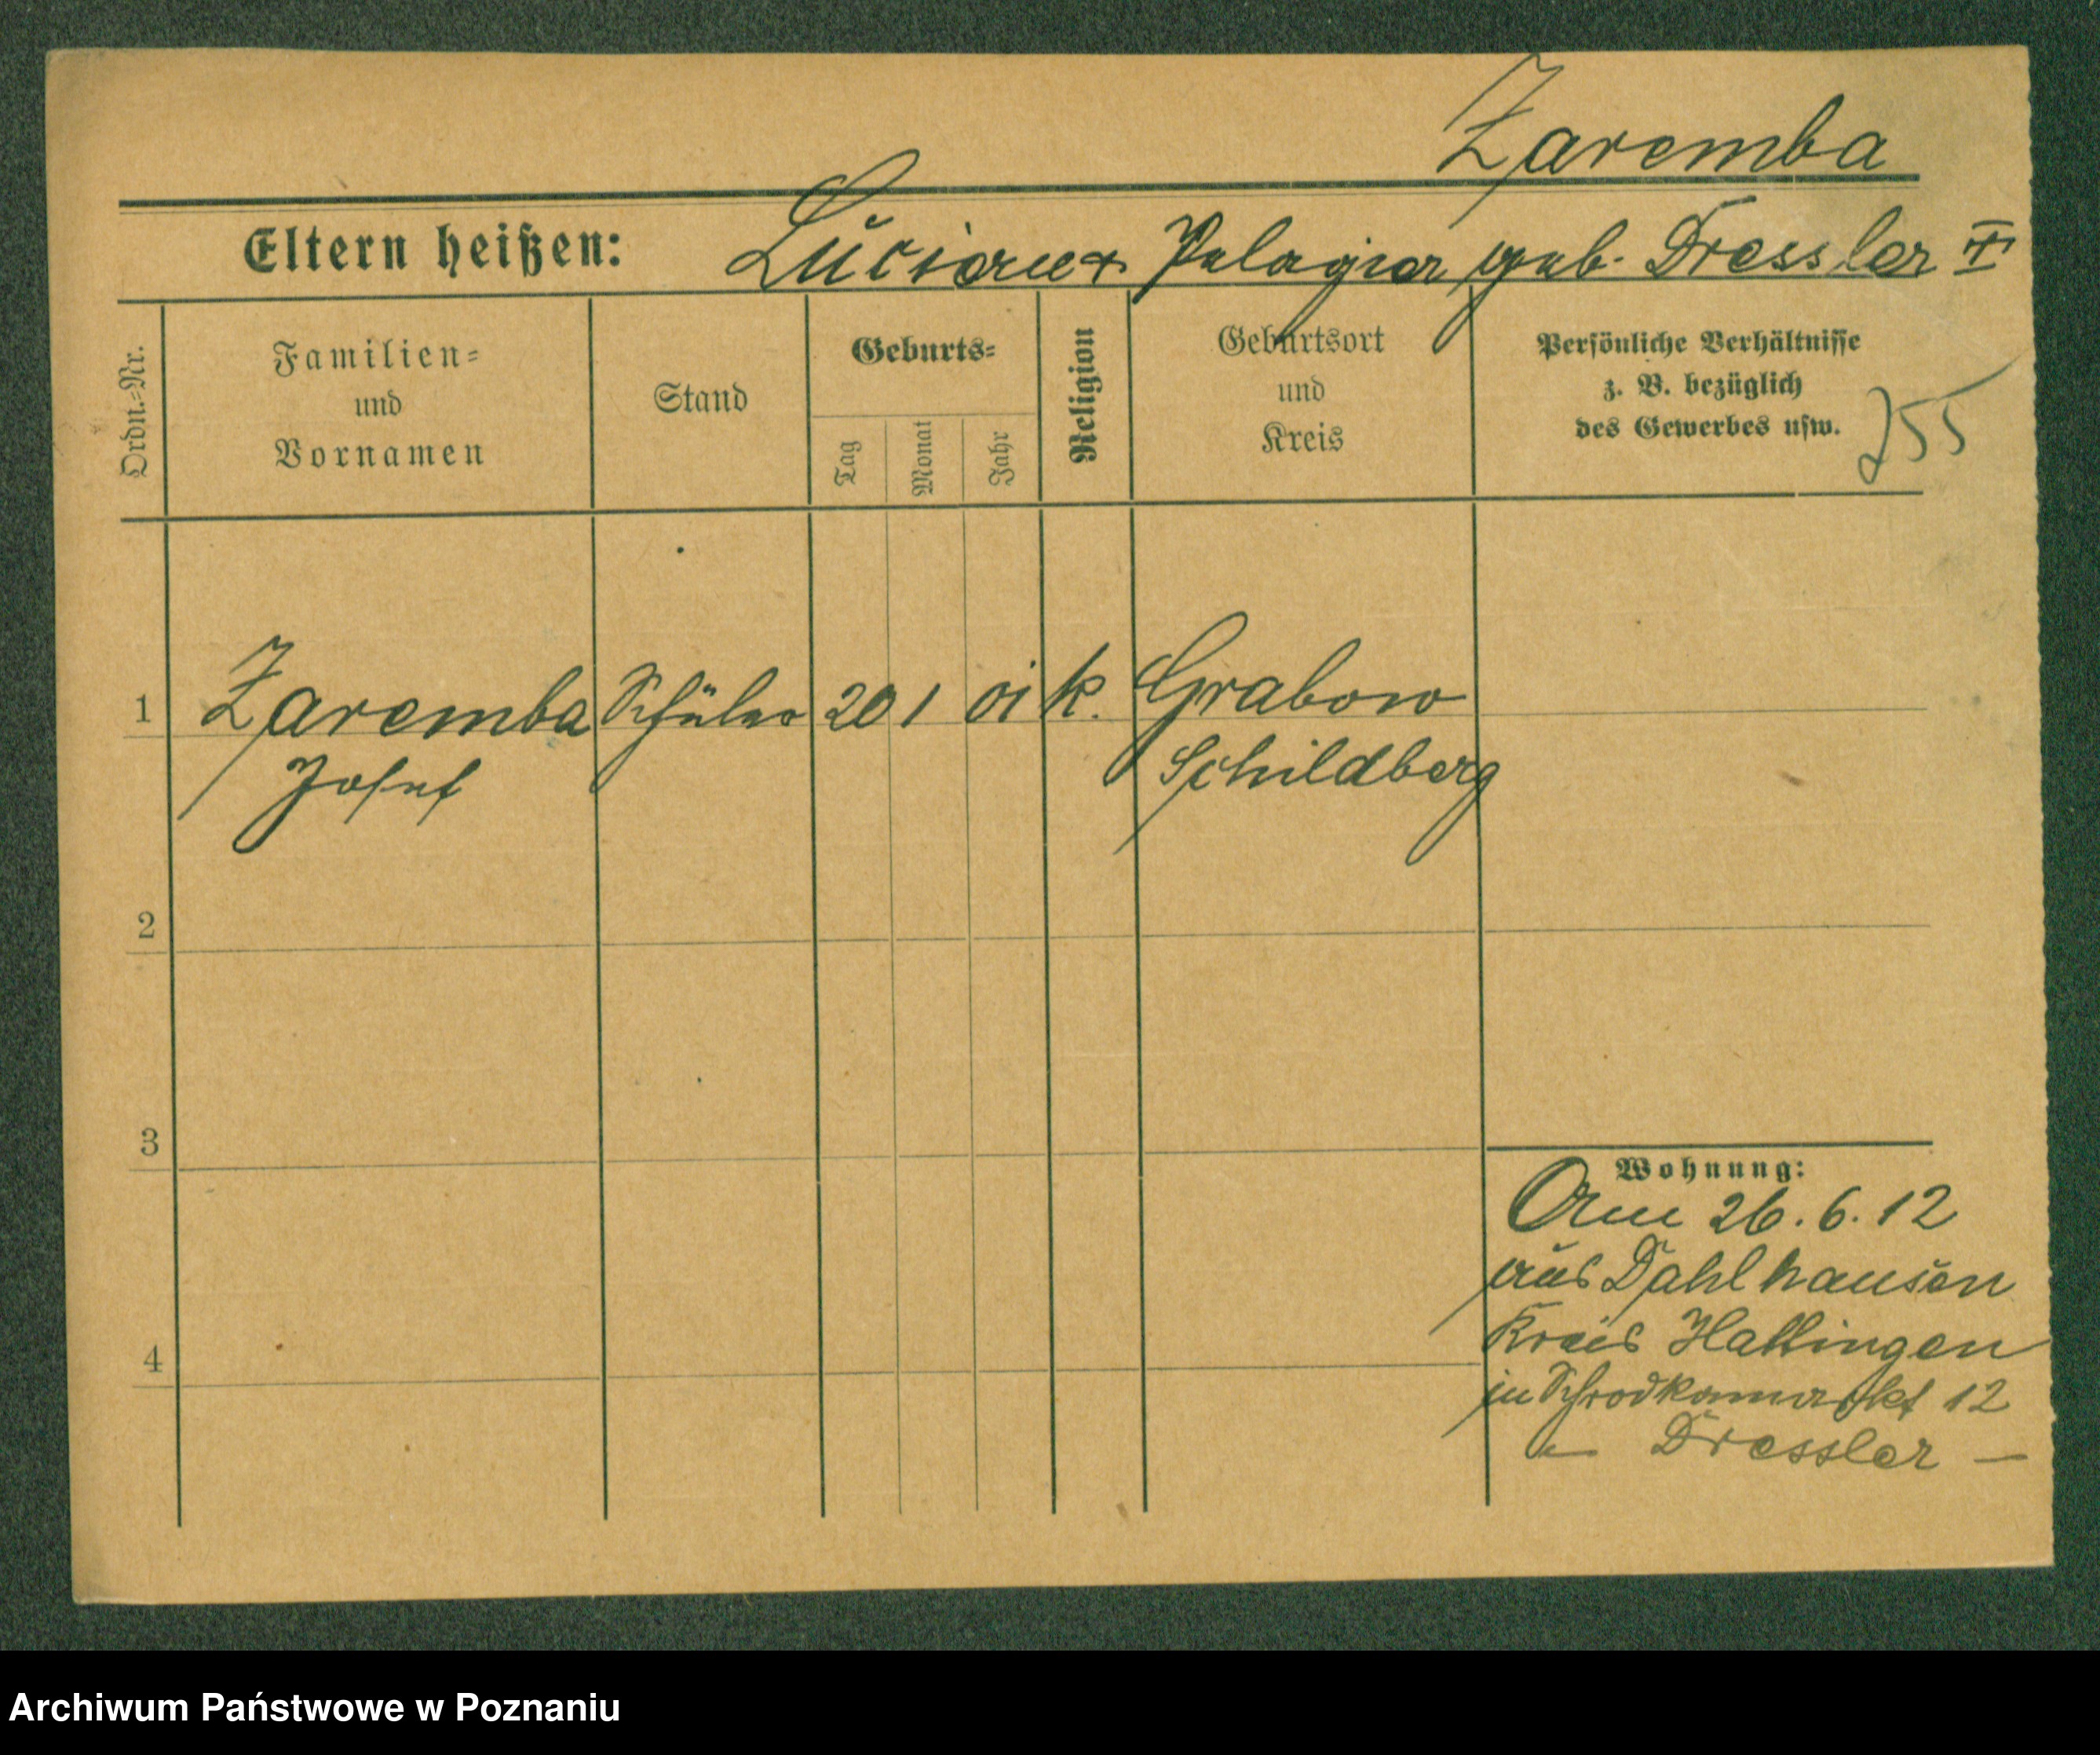 Zaremba
Eltern heißen: Lucian + Pelagia geb. Dressler II
Ordn.-Nr.
Familien-
und
Vornamen
Stand
Geburts-
Tag
Monat
Jahr
Religion
Geburtsort
und
Kreis
Persönliche Verhältnisse
z. B. bezüglich
des Gewerbes usw.
255
1 Zaremba Schüler 20 1 01 k. Grabow
Josef Schildberg
2
3
4
Wohnung:
Am 26. 6. 12
aus Dahlhausen
Kreis Hattingen
in Schrodkamarkt 12
— Dressler —
Archiwum Państwowe w Poznaniu